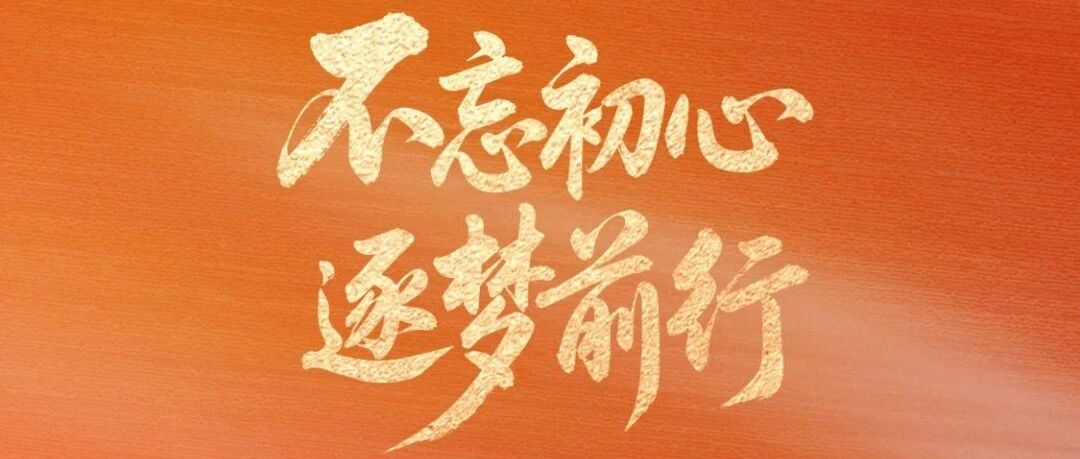 不忘初心
逐梦前行